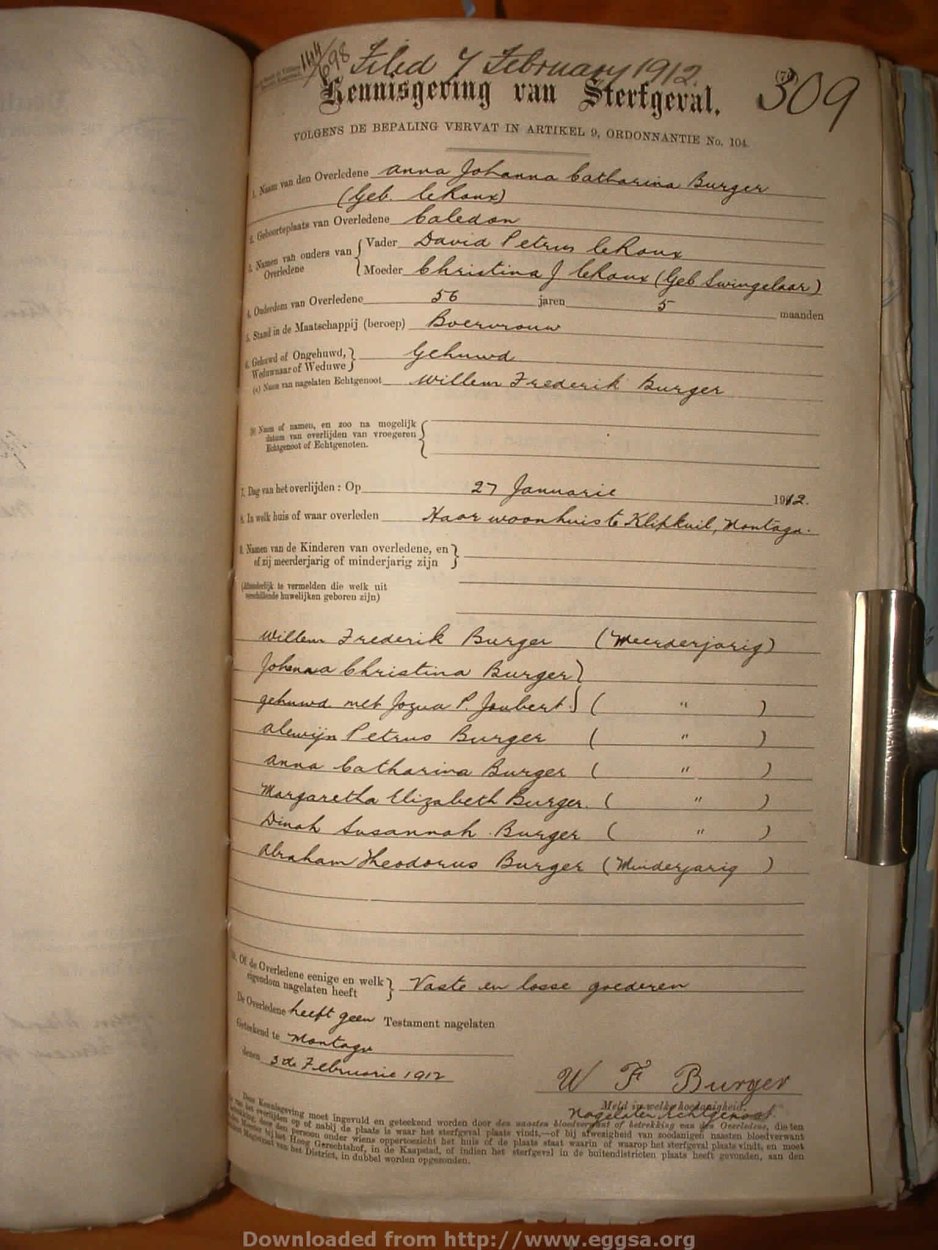 144/698 Filed 7 February 1912. 309
Kennisgeving van Sterfgeval.
VOLGENS DE BEPALING VERVAT IN ARTIKEL 9, ORDONNANTIE No. 104.
1. Naam van den Overledene Anna Johanna Catharina Burger
(Geb. leRoux)
2. Geboorteplaats van Overledene Caledon
3. Namen van ouders van Overledene { Vader David Petrus leRoux
Moeder Christina J leRoux (Geb Swingelaar)
4. Ouderdom van Overledene 56 jaren 5 maanden
5. Stand in de Maatschappij (beroep) Boervrouw
6. Gehuwd of Ongehuwd, Weduwnaar of Weduwe } Gehuwd
(a) Naam van nagelaten Echtgenoot Willem Frederik Burger
(b) Naam of namen, en zoo na mogelijk
datum van overlijden van vroegeren
Echtgenoot of Echtgenoten. {
7. Dag van het overlijden : Op 27 Januarie 1912.
8. In welk huis of waar overleden Haar woonhuis te Klipkuil, Montagu.
9. Namen van de Kinderen van overledene, en
of zij meerderjarig of minderjarig zijn }
(Afzonderlijk te vermelden die welk uit
verschillende huwelijken geboren zijn)
Willem Frederik Burger (Meerderjarig)
Johanna Christina Burger }
gehuwd met Jozua P. Joubert } ( " )
Alewijn Petrus Burger ( " )
Anna Catharina Burger ( " )
Margaretha Elizabeth Burger. ( " )
Dinah Susannah Burger ( " )
Abraham Theodorus Burger (Minderjarig )
10. Of de Overledene eenige en welk
eigendom nagelaten heeft } Vaste en losse goederen
De Overledene heeft geen Testament nagelaten
Geteekend te Montagu
denen 3de Februarie 1912
W F Burger
Meld in welke hoedanigheid.
Nagelaten Echtgenoot.
Deze Kennisgeving moet ingevuld en geteekend worden door den naasten bloedverwant of betrekking van den Overledene, die ten
van het overlijden op of nabij de plaats is waar het sterfgeval plaats vindt,—of bij afwezigheid van zoodanigen naasten bloedverwant
betrekking, door den persoon onder wiens oppertoezicht het huis of de plaats staat waarin of waarop het sterfgeval plaats vindt, en moet
Meester bij het Hoog Gerechtshof, in de Kaapstad, of indien het sterfgeval in de buitendistricten plaats heeft gevonden, aan den
Magistraat van het District, in dubbel worden opgezonden.
Downloaded from http://www.eggsa.org